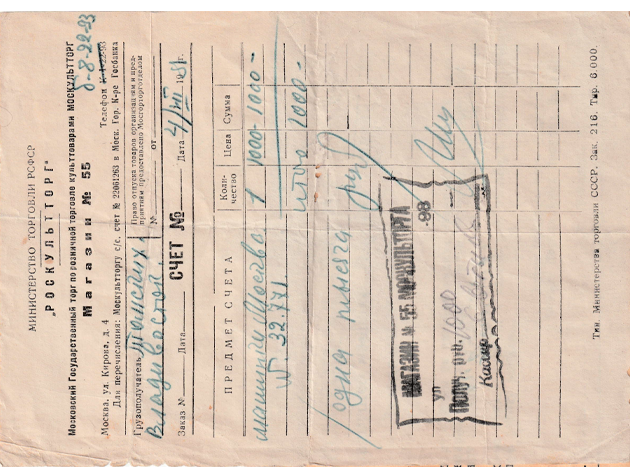 МИНИСТЕРСТВО ТОРГОВЛИ РСФСР
"РОСКУЛЬТТОРГ"
Московский Государственный торг по розничной торговле культтоварами МОСКУЛЬТТОРГ
Магазин № 55
Б-8-22-93
Москва, ул. Кирова, д. 4
Телефон К-4-22-93
Для перечисления: Москультторгу с/с, счет № 22061263 в Моск. Гор. К-ре Госбанка
Грузополучатель
Право отпуска товаров организациям и предприятиям предоставлено Мосгорторготделом
Владивосток
№ от
Заказ № Дата СЧЕТ № Дата 4/VII 1951г.
ПРЕДМЕТ СЧЕТА Количество Цена Сумма
машинка Москва 1 1000- 1000-
№ 32.771
итого 1000-
(одна тысяча руб)
МАГАЗИН № 55 МОСКУЛЬТТОРГА
ул
Получ. по 1000
Кассир
Тип. Министерства торговли СССР, Зак. 216. Тир. 6.000.